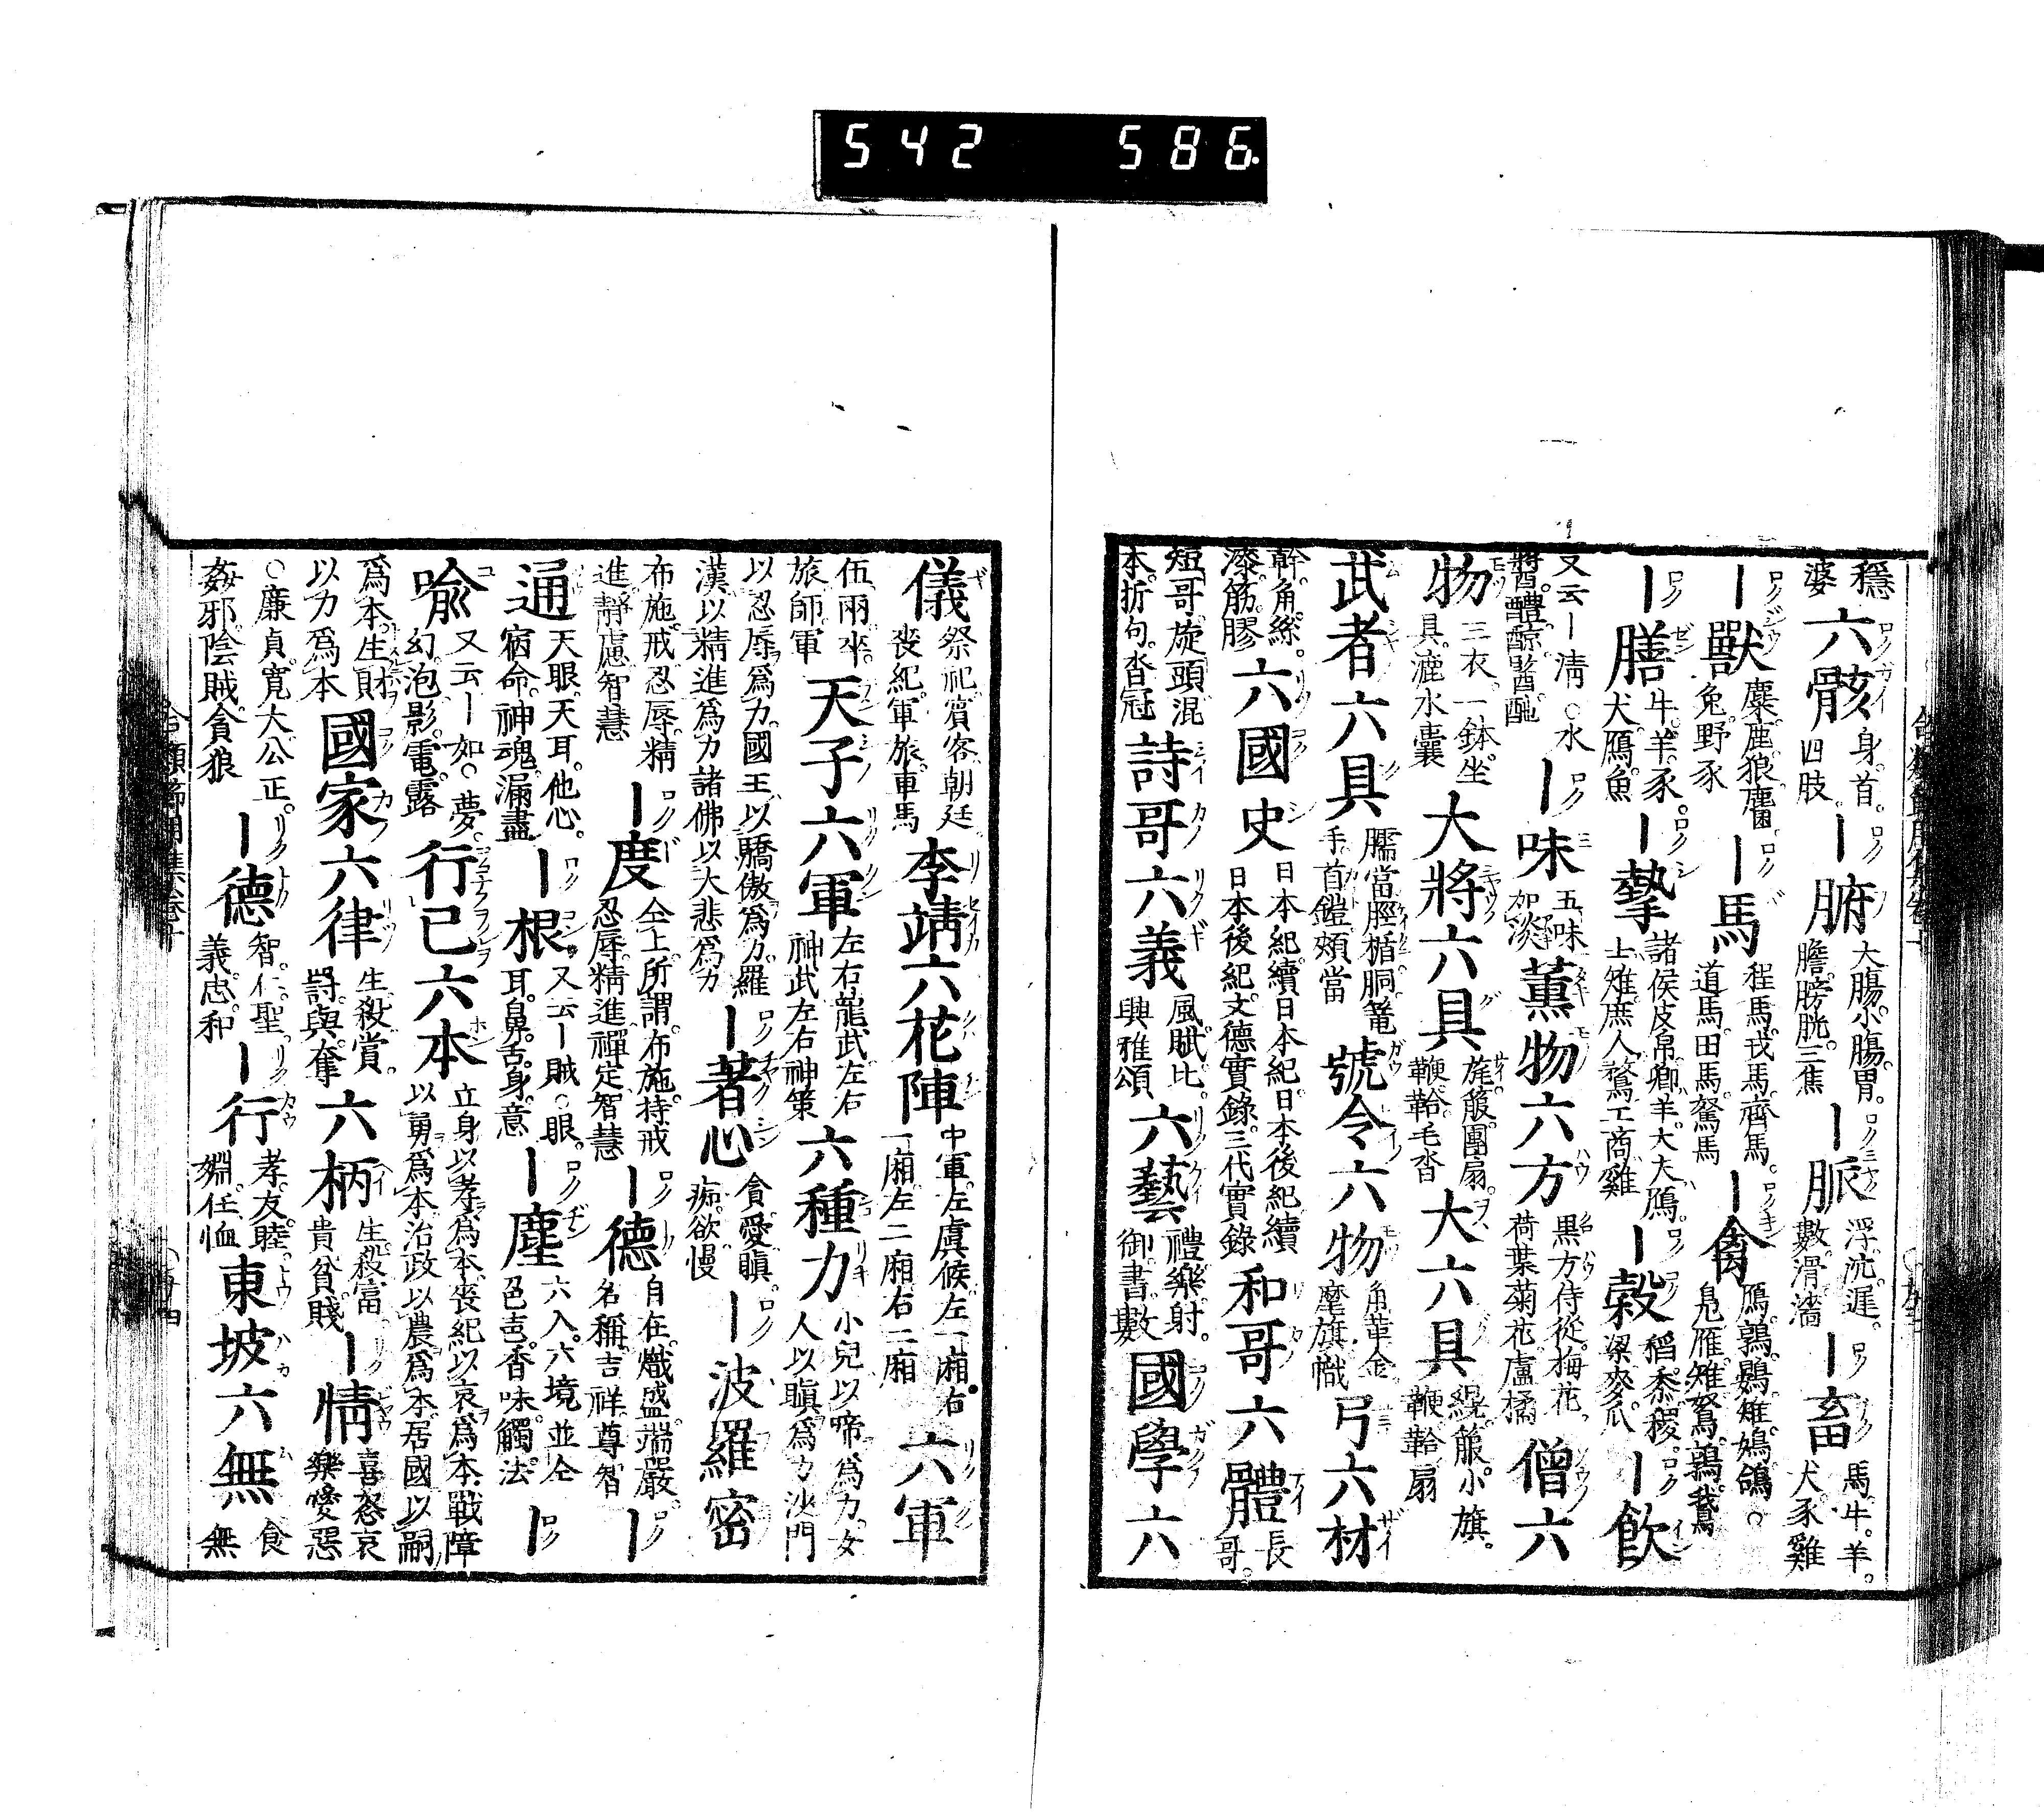 542 586
穩婆 六骸 身首四肢 ｜腑 大腸小腸胃膽膀胱三焦 ｜脈 浮沈遲數滑濇 ｜畜 馬牛羊犬豕雞
｜獸 麋鹿狼麕兔野豕 ｜馬 種馬戎馬齊馬道馬田馬駑馬 ｜禽 鴈鶉鷃雉鳩鴿○鳧雁雉鴽鶉鵞
｜膳 牛羊豕犬鴈魚 ｜摯 諸侯皮帛卿羊大夫鴈士雉庶人鶩工商雞 ｜穀 稻黍稷粱麥瓜 ｜飲
又云｜淸○水漿醴醇醫酏 ｜味 五味加淡 薫物六方 黒方侍從梅花荷葉菊花盧橘 僧六
物 三衣一鉢坐具漉水囊 大將六具 旄箙團扇鞭鞈毛沓 大六具 纓箙小旗鞭鞈扇
武者六具 臑當脛楯胴篭手首鎧頰當 號令六物 角革金麾旗幟 弓六材
幹角絲漆筋膠 六國史 日本紀續日本紀日本後紀續日本後紀文德實錄三代實錄 和哥六體 長哥
短哥旋頭混本折句沓冠 詩哥六義 風賦比興雅頌 六藝 禮樂射御書數 國學六
儀 祭祀賓客朝廷喪紀軍旅車馬 李靖六花陣 中軍左虞候左一廂右一廂左二廂右二廂 六軍
伍兩卒旅師軍 天子六軍 左右龍武左右神武左右神策 六種力 小兒以啼爲力女人以瞋爲力沙門
以忍辱爲力國王以驕傲爲力羅漢以精進爲力諸佛以大悲爲力 ｜著心 貪愛瞋痴欲慢 ｜波羅密
布施戒忍辱精進靜慮智慧 ｜度 仝上所謂布施持戒忍辱精進禪定智慧 ｜德 自在熾盛端嚴名稱吉祥尊智 ｜
通 天眼天耳他心宿命神魂漏盡 ｜根 又云｜賊○眼耳鼻舌身意 ｜塵 六入六境並仝色声香味觸法 ｜
喩 又云｜如○夢幻泡影電露 行已六本 立身以孝爲本喪紀以哀爲本戰障以勇爲本治政以農爲本居國以嗣
爲本生財以力爲本 國家六律 生殺賞罸與奪 六柄 生殺富貴貧賤 ｜情 喜怒哀樂愛惡
○廉貞寛大公正姦邪陰賊貪狼 ｜德 智仁聖義忠和 ｜行 孝友睦婣任恤 東坡六無 食無